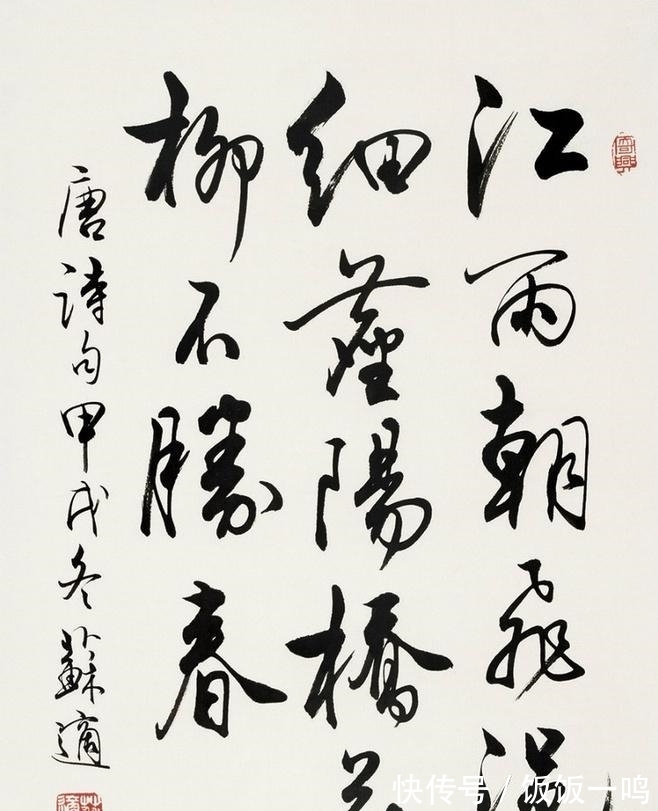 江雨朝飛
細塵陽橋
柳不勝春
唐詩句甲戌冬蘇適
快传号 / 饭饭一鸣